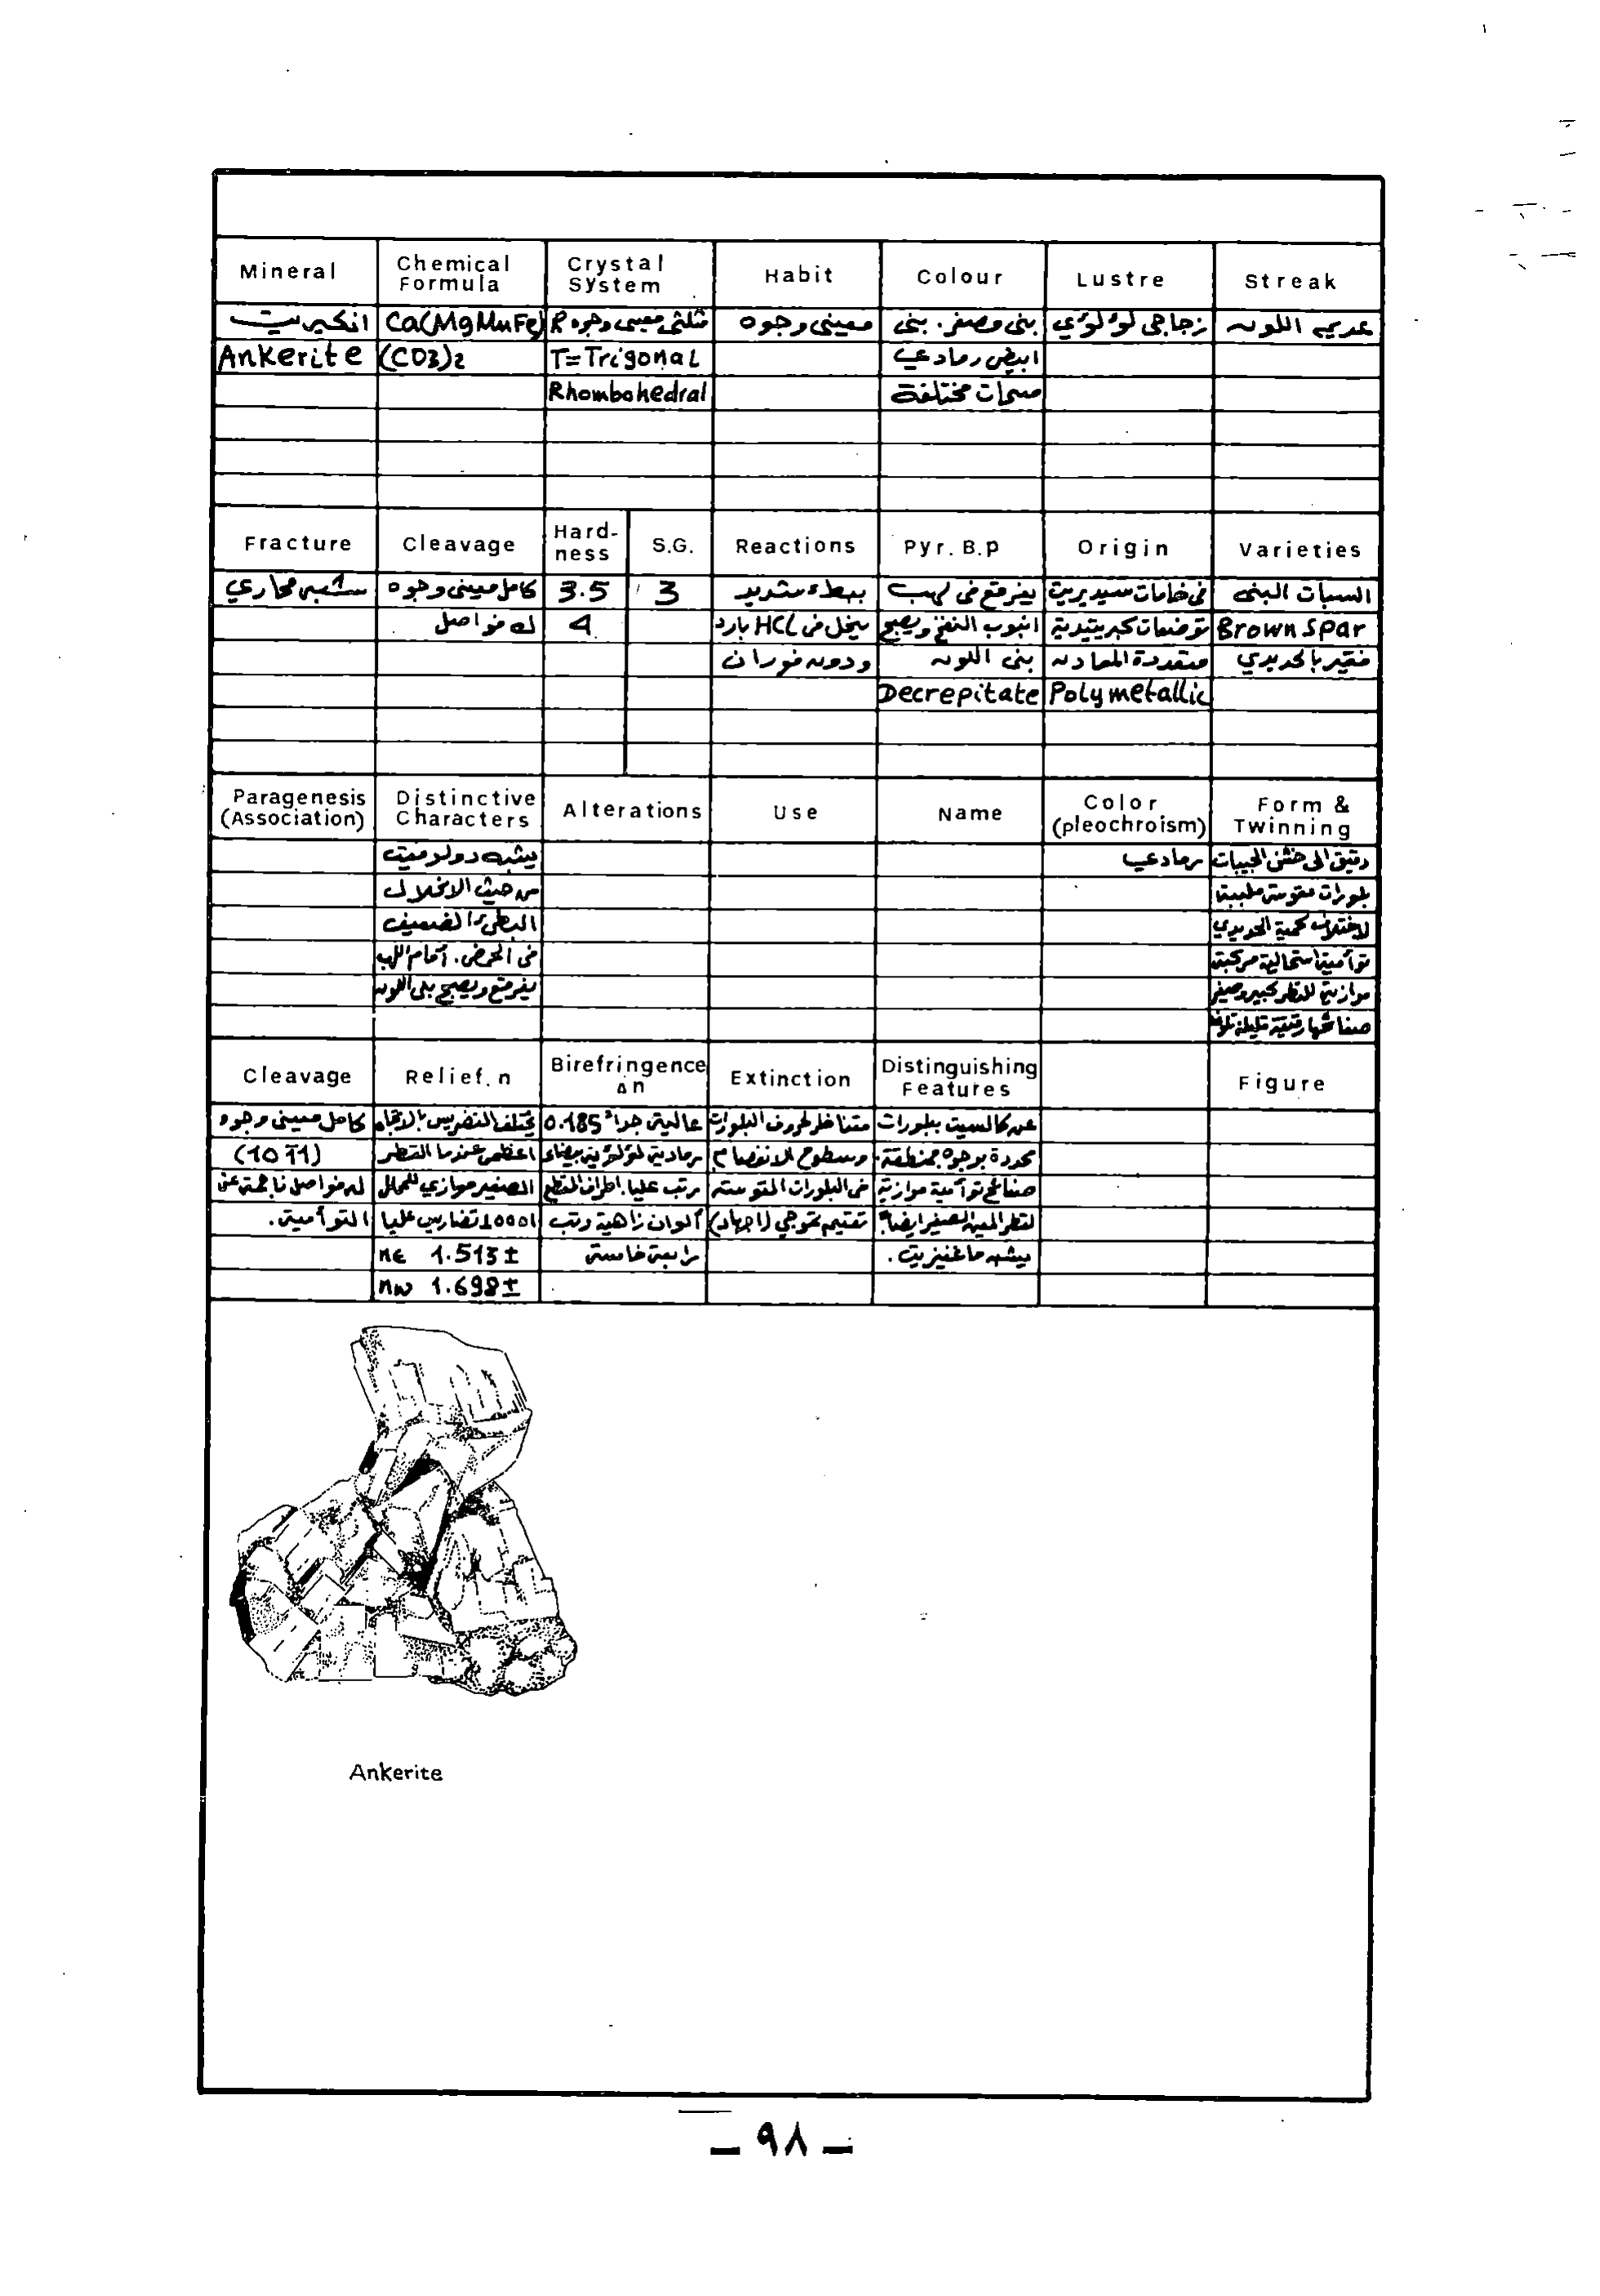 Mineral
Chemical Formula
Crystal System
Habit
Colour
Lustre
Streak
انكيريت
Ca(MgMnFe)
مثلثي معيني وجوه R
معيني وجوه
بني مصفر. بني
زجاجي لؤلؤي
عديم اللون
Ankerite
(CO3)2
T=Trigonal
ابيض رمادي
Rhombohedral
مختلفة
Fracture
Cleavage
Hard-ness
S.G.
Reactions
Pyr. B.p
Origin
Varieties
شبه محاري
كامل معيني وجوه
3.5
3
ببطء شديد
يفرقع في لهب
في خامات سيديريت
السبات البني
له فواصل
4
ينحل في HCl بارد
انبوب النفخ ويصبح
توضعات كبريتيدية
Brown Spar
ودون فوران
بني اللون
متعددة المعادن
فقير بالحديدي
Decrepitate
Polymetallic
Paragenesis (Association)
Distinctive Characters
Alterations
Use
Name
Color (pleochroism)
Form & Twinning
يشبه دولوميت
رمادي
دقيق الى خشن الحبيبات
من حيث الانحلال
بلورات مقوسة
البطيء الضعيف
كمية الحديدي
في الحمض. أمام اللهب
توأمية استحالية مركبة
يفرقع ويصبح بني اللون
موازية للقطر كبير وصغير
صفائحها رقيقة قليلة
Cleavage
Relief. n
Birefringence Δn
Extinction
Distinguishing Features
Figure
كامل معيني وجوه
يختلف التضريس بالاتجاه
عالية جداً 0.185
متناظر لحروف البلورات
عن كالسيت ببلورات
(101̄1)
اعظمي عندما القطر
رمادية لؤلؤية بيضاء
وسطوح الانفصام
محددة بوجوه بمنطقة.
له فواصل ناجمة عن
الصغير موازي للمحلل
مرتب عليا. اطراف المقطع
في البلورات المقوسة
صفائح توأمية موازية
التوأمية.
تضاريس عليا
ألوان زاهية رتب
تعتيم تموجي (اجهاد)
لقطر المعين الصغير ايضاً.
nε 1.513±
رابعة خامسة
يشبه ماغنيزيت.
nω 1.698±
Ankerite
– ٩٨ –